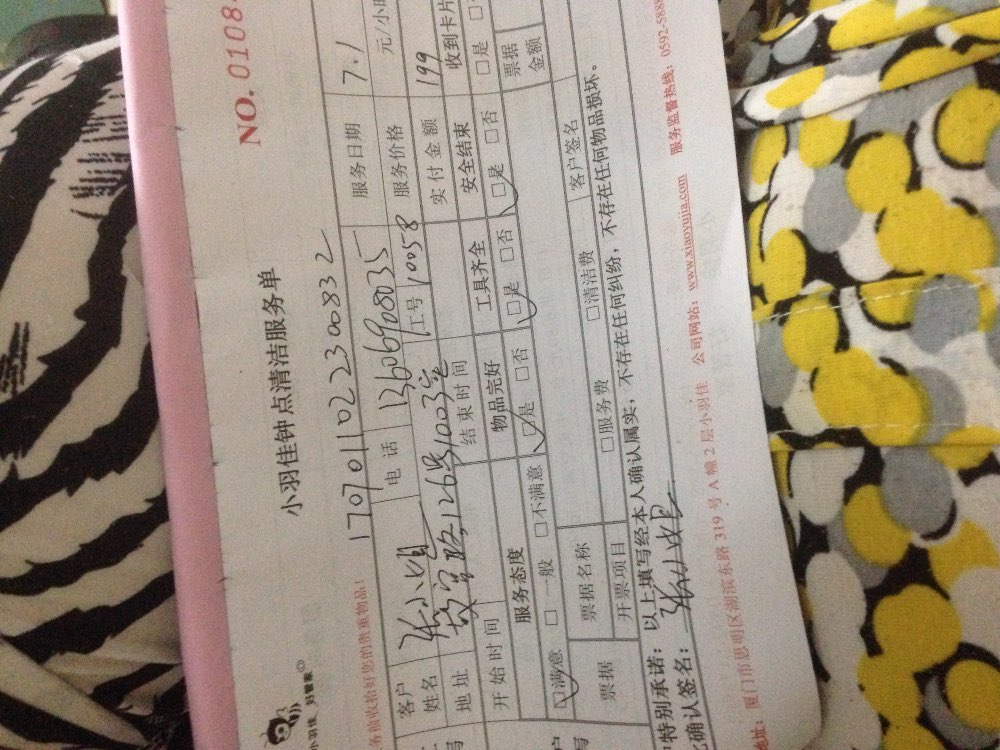 小羽佳钟点清洁服务单
NO. 01084
小羽佳 好管家
务前收拾好您的贵重物品!
17070110223000832
客户姓名 张小姐 电话 13606908035 服务日期 7.1
地址 126号1003室 工号 10058 服务价格 元/小时
开始时间 结束时间 实付金额 199
服务态度 物品完好 工具齐全 安全结束 收到卡片
☑满意 □一般 □不满意 ☑是 □否 ☑是 □否 ☑是 □否 □是
票据 票据名称 票据金额
开票项目 □服务费 □清洁费 客户签名
特别承诺：以上填写经本人确认属实，不存在任何纠纷，不存在任何物品损坏。
确认签名：
地址：厦门市思明区湖滨东路319号A幢2层小羽佳 公司网站：www.xiaoyujia.com 服务监督热线：0592-588